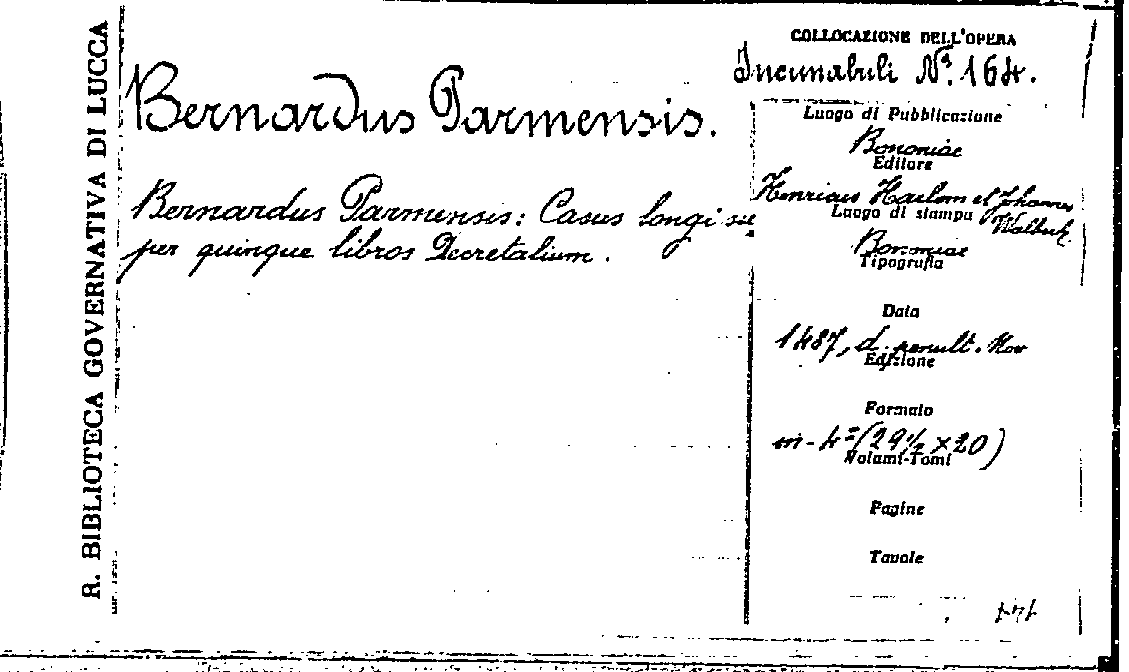 R. BIBLIOTECA GOVERNATIVA DI LUCCA
Bernardus Parmensis.
Bernardus Parmensis: Casus longi su
per quinque libros Decretalium.
COLLOCAZIONE DELL'OPERA
Incunabuli Nº. 164.
Luogo di Pubblicazione
Bononiae
Editore
Henricus Haelem et Johannes
Walbeck
Luogo di stampa
Bononiae
Tipografia
Data
1487, d. penult. Nov
Edizione
Formato
in-4º (29½ x 20)
Volumi-Tomi
Pagine
Tavole